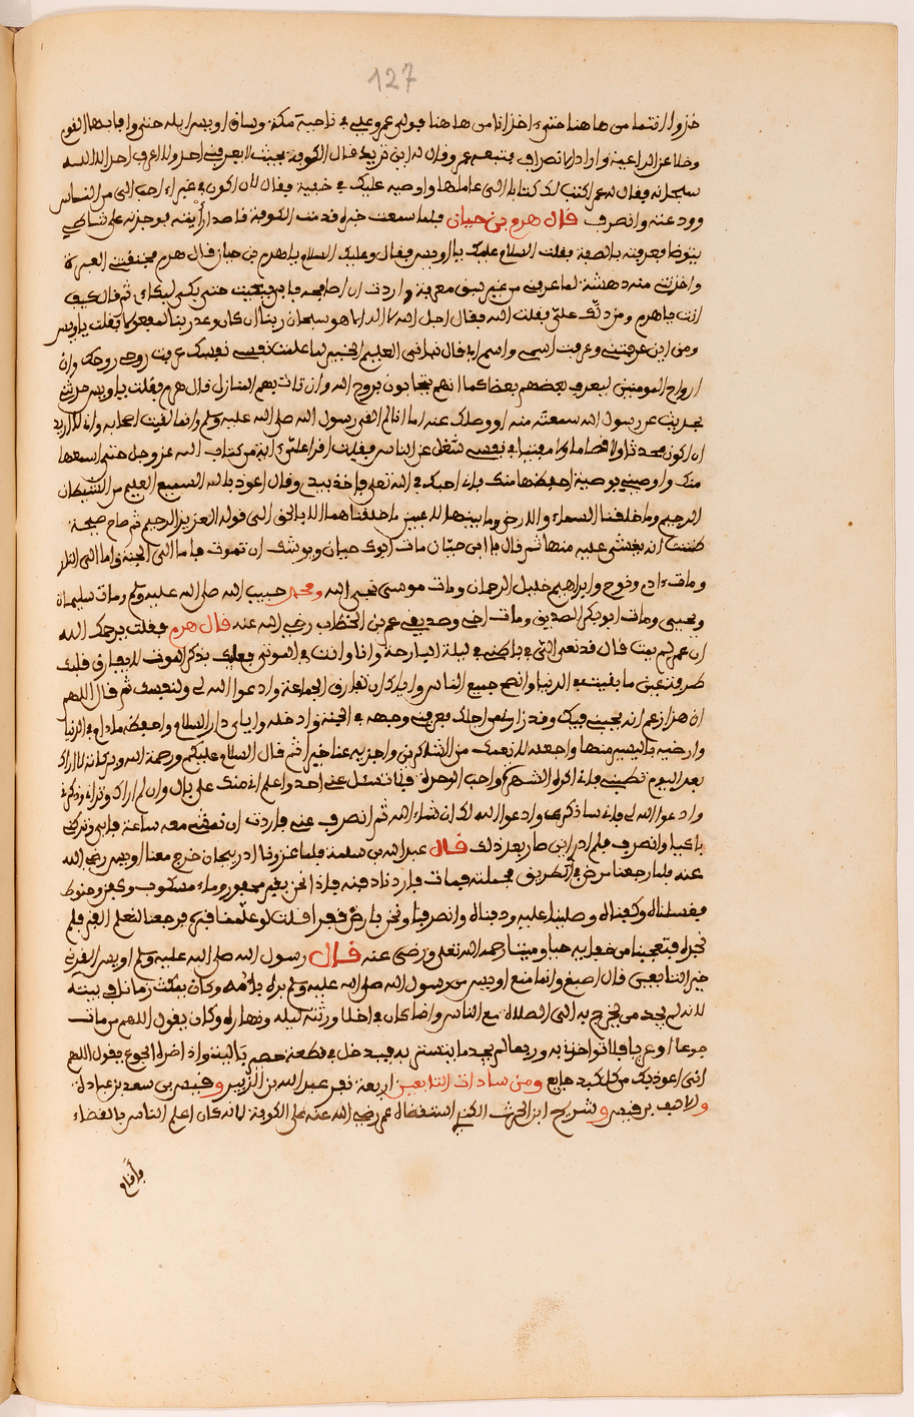 127
خذوا انتما من هاهنا حتى اخذ انا من هاهنا فولى عمر وعلي في ناحية مكة وساق اويس ابله حتى وافا بها القوم
وخلا عن الراعية واراد الانصراف فتبعه عمر وقال له اين تريد قال الكوفة بحيث لا يعرفني احد ولا اعرف احدا الا الله
سبحانه فقال له عمر اكتب لك كتابا الى عاملها واوصيه عليك في خفية فقال لان اكون في غبراء احب الي من الناس
وودعته وانصرف قال هرم بن حيان فلما سمعت خبره قدمت الكوفة قاصدا رأيته فوجدته على شاطي
يتوضا فعرفته بالصفة فقلت السلام عليك يا اويس فقال وعليك السلام يا هرم بن حيان قال هرم فخنقتني العبرة
واخذتني منه دهشة لما عرفني من غير سبق معرفة واردت ان اصافحه فابى فبكيت حتى بكى لبكاي ثم قال كيف
انت يا هرم ومن دلك علي فقلت الله فقال اجل الله لا اله الا هو سبحان ربنا ان كان وعد ربنا لمفعولا فقلت يا اويس
ومن اين عرفتني وعرفت اسمي واسم ابي قال نبأني العليم الخبير لما علمت نفسي نفسك عرفت روحي روحك وان
ارواح المومنين ليعرف بعضهم بعضا كما انهم يتحابون بروح الله وان تات بهم المنازل قال هرم فقلت يا اويس حدثني
بحديث عن رسول الله سمعته منه او وصلك عنه اما انا لم القى رسول الله صلى الله عليه وسلم وانما لقيت اصحابه وانا لا اريد
ان اكون محدثا ولا قصاصا ولا مفتيا في نفسي شغل عن الناس فقلت اقرا علي آية من كتاب الله عز وجل حتى اسمعها
منك واوصيني بوصية احفظها منك فاني احبك في الله تعلى فاخذ بيدي وقال اعوذ بالله السميع العليم من الشيطان
الرجيم وما خلقنا السماء والارض وما بينهما لاعبين ما خلقناهما الا بالحق الى قوله العزيز الرحيم ثم صاح صيحة
ظننت انه يغشى عليه منها ثم قال يا ابن حيان مات ابوك حيان ويوشك ان تموت فاما الى الجنة واما الى النار
ومات ءادم ونوح وابراهيم خليل الرحمان ومات موسى نجي الله ومحمد حبيب الله صلى الله عليه وسلم ومات سليمان
ويحيى ومات ابو بكر الصديق ومات اخي وصديقي عمر بن الخطاب رضي الله عنه قال هرم فقلت يرحمك الله
ان عمر لم يمت قال قد نعي الي في باطني في ليلة البارحة وانا وانت في الموتى فعليك بذكر الموت لا يفارق قلبك
طرفة عين ما بقيت في الدنيا وانصح جميع الناس واياك ان تفارق الجماعة وادعوا الله لي ولنفسك ثم قال اللهم
ان هذا زعم انه يحبني فيك وقد زارني من اجلك فعرفني وجهه في الجنة وادخله واياي دار السلام واحفظه مادام في الدنيا
وارضيه باليسير منها واجعله لانعمك من الشاكرين واجزيه عنا خيرا ثم قال السلام عليكم ورحمة الله وبركاته لا اراك
بعد اليوم تطلبني فاني اكره الشهرة واحب الوحدة فلا تسئل عني احدا واعلم انك مني على بال وان لم اراك وتراني وذكرني
وادعوا الله لي فاني ساذكرك وادعوا الله لك ان شاء الله ثم انصرف عني فاردت ان نمشي معه ساعة فابى وتركني
باكيا وانصرف فلم ادر اين صار بعد ذلك قال عبد الله بن سلمة فلما غزونا اذربيجان خرج معنا اويس رضي الله
عنه فلما رجعنا مرض في الطريق فحملته فمات فاردنا دفنه فاذا نحن بقبر محفور وماء مسكوب وكفن وحنوط
فغسلناه وكفناه وصلينا عليه ودفناه وانصرفنا ونحن بارض قفرا فقلت لو علمنا قبره فرجعنا لنعلم القبر فلم
نجده فتعجبنا من خفايه حيا وميتا رحمه الله تعلى ورضي عنه قال رسول الله صلى الله عليه وسلم اويس القرني
خير التابعين قال اصبغ وانما منع اويس من رسول الله صلى الله عليه وسلم بره بامه وكان يمكث زمانا في بيته
لانه لم يجد من يخرج به الى الصلاة مع الناس وايضا كان في اخلا ورثته ليله ونهاره وكان يقول اللهم من مات
جوعا او عريا فلا تواخذني به وربما لم يجد ما يتستر به فيدخل في قطعة حصير بالية واذا ضره الجوع يقول اللهم
اني اعوذ بك من كل كبد جايع ومن سادات التابعين اربعة نفر عبد الله بن الزبير وقيس بن سعد بن عبادة
والاحنف بن قيس وشريح ابن الحرث الكندي استقضاه عمر رضي الله عنه على الكوفة لانه كان اعلم الناس بالقضاء
واقام